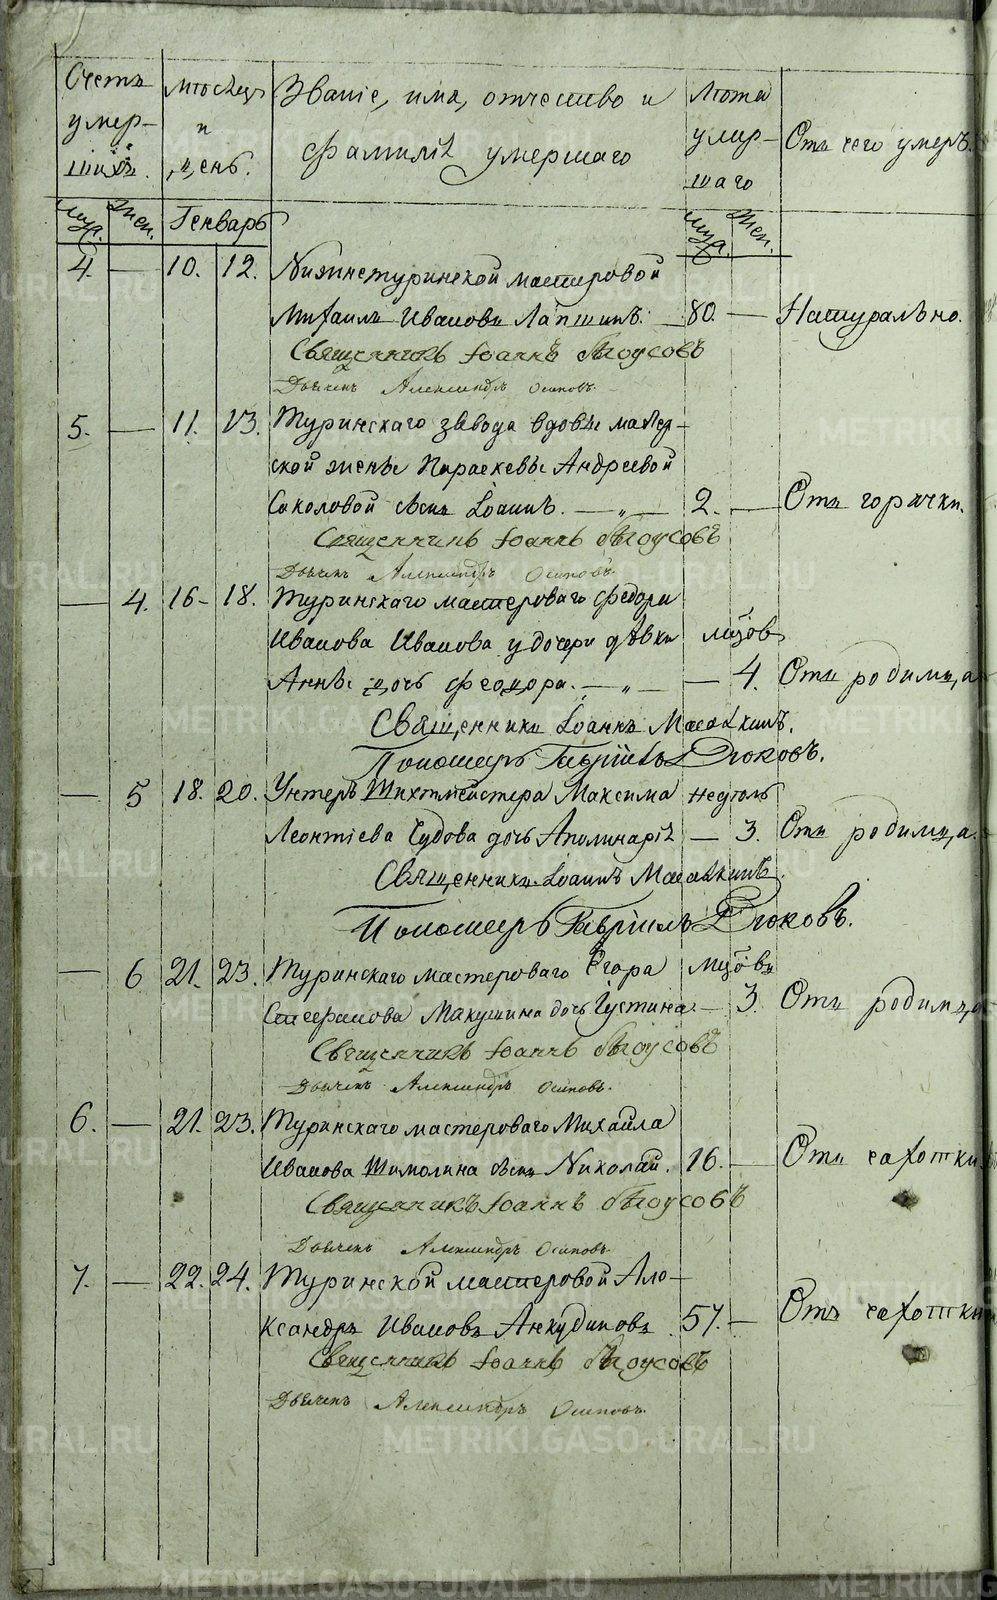 Счетъ умер- шихъ.
Мѣсяцъ и день.
Званіе, имя, отчество и фамилія умершаго
Лѣта умер- шаго
Отъ чего умеръ.
Муж. Жен. Генварь Муж. Жен.
4. — 10. 12. Нижнетуринской мастеровой
Михаилъ Ивановъ Лапшинъ. — 80. — Натурально.
Священникъ Іоаннъ Бѣлоусовъ
Дьячекъ Александръ Осиповъ
5. — 11. 13. Туринскаго завода вдовы мастер-
ской жены Параскевы Андреевой
Соколовой сынъ Іоаннъ. — „ — 2. — Отъ горячки.
Священникъ Іоаннъ Бѣлоусовъ
Дьячекъ Александръ Осиповъ.
— 4. 16 - 18. Туринскаго мастероваго Федора
Иванова Иванова у дочери дѣвки мцов
Анны дочь Феодора. — „ — — 4. Отъ родимца
Священникъ Іоаннъ
Пономарь Гавріилъ Дюковъ.
— 5 18. 20. Унтеръ Шихтмейстера Максима недѣль
Леонтіева Чудова дочь Аполинарія — 3. Отъ родимца.
Священникъ Іоаннъ
Пономарь Гавріилъ Дюковъ.
— 6 21. 23. Туринскаго мастероваго Егора мцовъ
Макушина дочь Густина. — 3. Отъ родимца
Священникъ Іоаннъ Бѣлоусовъ
Дьячекъ Александръ Осиповъ.
6. — 21. 23. Туринскаго мастероваго Михаила
Иванова Шимолина сынъ Николай. 16. — Отъ чахотки
Священникъ Іоаннъ Бѣлоусовъ
Дьячекъ Александръ Осиповъ
7. — 22. 24. Туринской мастеровой Але-
ксандръ Ивановъ Анкудиновъ 57. — Отъ чахотки
Священникъ Іоаннъ Бѣлоусовъ
Дьячекъ Александръ Осиповъ.
METRIKI.GASO-URAL.RU